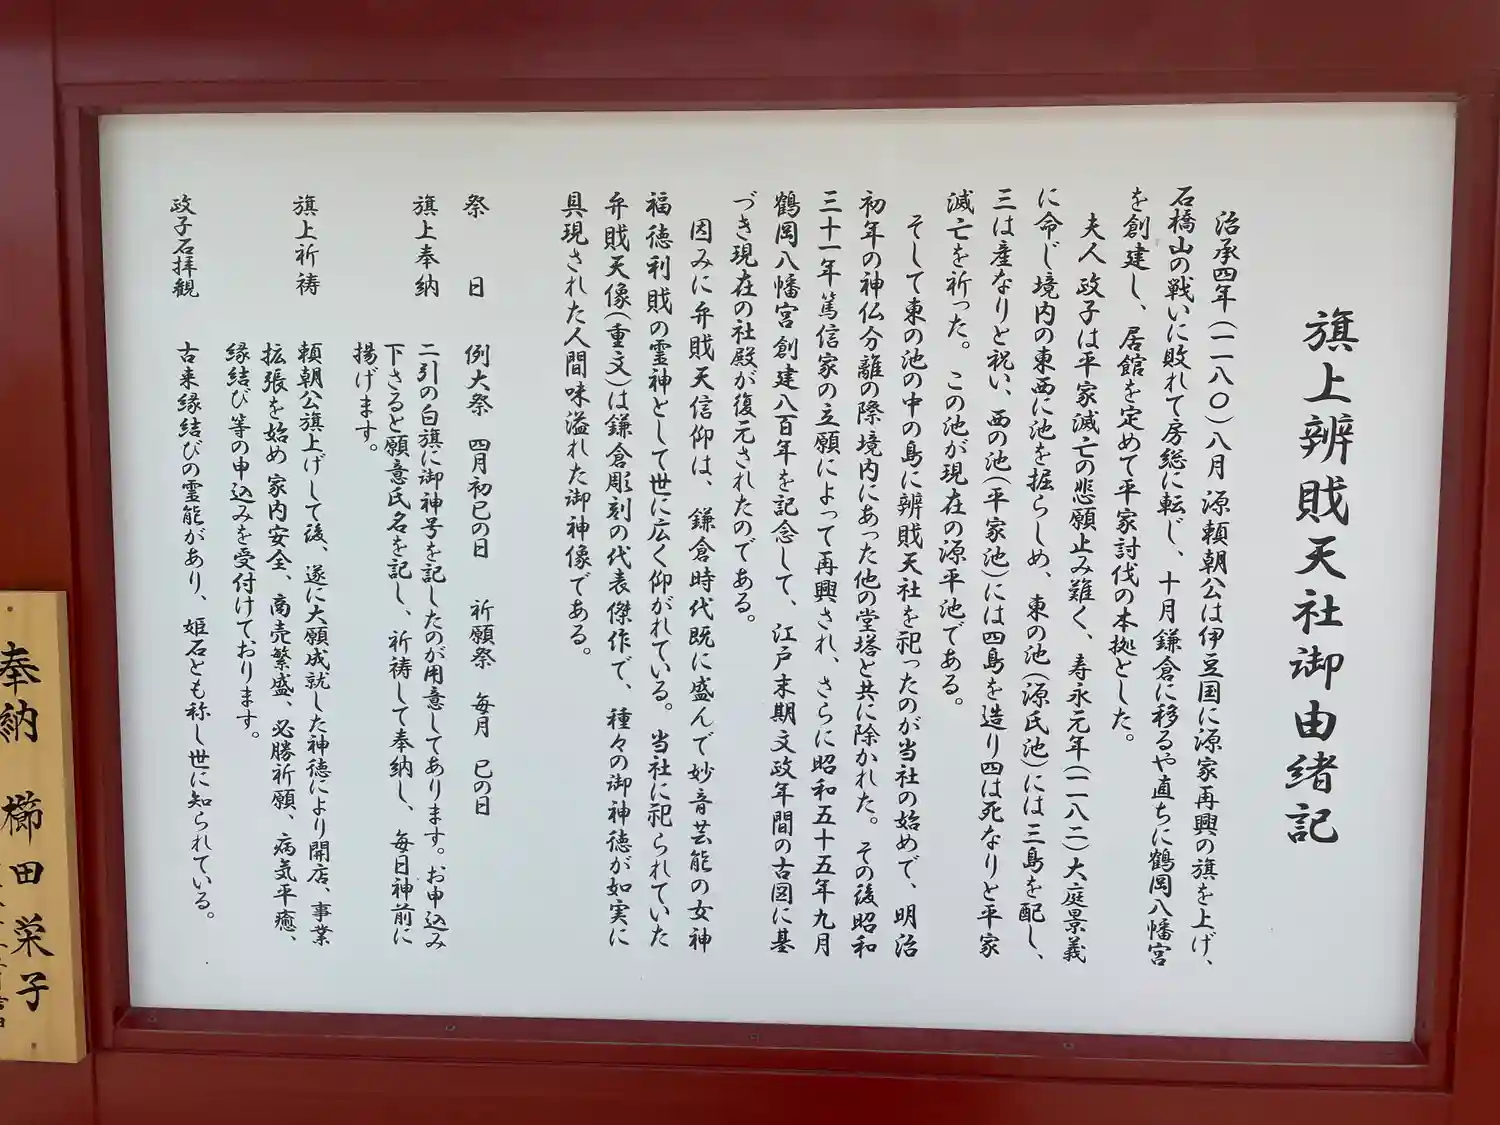 旗上辨戝天社御由緒記
治承四年(一一八〇)八月 源頼朝公は伊豆国に源家再興の旗を上げ、
石橋山の戦いに敗れて房総に転じ、十月鎌倉に移るや直ちに鶴岡八幡宮
を創建し、居館を定めて平家討伐の本拠とした。
夫人 政子は平家滅亡の悲願止み難く、寿永元年(一一八二)大庭景義
に命じ境内の東西に池を掘らしめ、東の池(源氏池)には三島を配し、
三は産なりと祝い、西の池(平家池)には四島を造り四は死なりと平家
滅亡を祈った。この池が現在の源平池である。
そして東の池の中の島に辨戝天社を祀ったのが当社の始めで、明治
初年の神仏分離の際境内にあった他の堂塔と共に除かれた。その後昭和
三十一年篤信家の立願によって再興され、さらに昭和五十五年九月
鶴岡八幡宮創建八百年を記念して、江戸末期文政年間の古図に基
づき現在の社殿が復元されたのである。
因みに弁戝天信仰は、鎌倉時代既に盛んで妙音芸能の女神
福徳利戝の霊神として世に広く仰がれている。当社に祀られていた
弁戝天像(重文)は鎌倉彫刻の代表傑作で、種々の御神徳が如実に
具現された人間味溢れた御神像である。
祭 日 例大祭 四月初巳の日 祈願祭 毎月 巳の日
旗上奉納 二引の白旗に御神号を記したのが用意してあります。お申込み
下さると願意氏名を記し、祈祷して奉納し、毎日神前に
揚げます。
旗上祈祷 頼朝公旗上げして後、遂に大願成就した神徳により開店、事業
拡張を始め 家内安全、商売繁盛、必勝祈願、病気平癒、
縁結び等の申込みを受付けております。
政子石拝観 古来縁結びの霊能があり、姫石とも称し世に知られている。
奉納 櫛田栄子